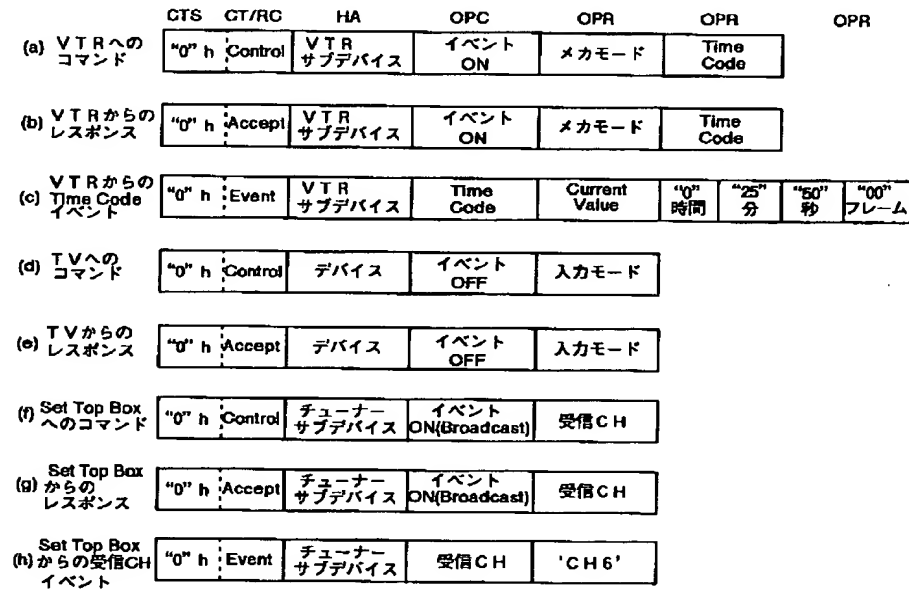 CTS CT/RC HA OPC OPR OPR OPR
(a) VTRへの
コマンド
“0” h Control VTR
サブデバイス イベント
ON メカモード Time
Code
(b) VTRからの
レスポンス
“0” h Accept VTR
サブデバイス イベント
ON メカモード Time
Code
(c) VTRからの
Time Code
イベント
“0” h Event VTR
サブデバイス Time
Code Current
Value “0”
時間 “25”
分 “50”
秒 “00”
フレーム
(d) TVへの
コマンド
“0” h Control デバイス イベント
OFF 入力モード
(e) TVからの
レスポンス
“0” h Accept デバイス イベント
OFF 入力モード
(f) Set Top Box
へのコマンド
“0” h Control チューナー
サブデバイス イベント
ON(Broadcast) 受信CH
(g) Set Top Box
からの
レスポンス
“0” h Accept チューナー
サブデバイス イベント
ON(Broadcast) 受信CH
(h) Set Top Box
からの受信CH
イベント
“0” h Event チューナー
サブデバイス 受信CH 'CH6'